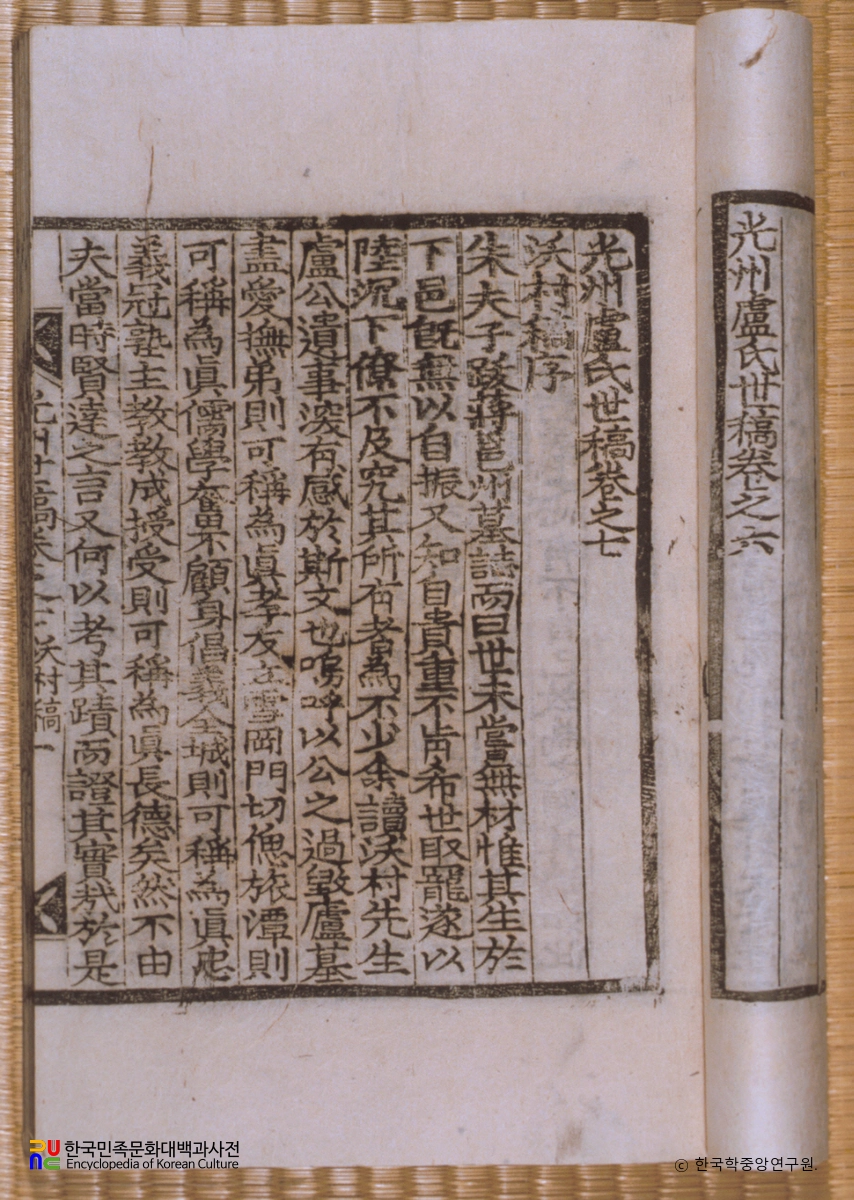 光州盧氏世稿卷之六
光州盧氏世稿卷之七
沃村稿序
朱夫子跋蔣邕州墓誌而曰世未嘗無材惟其生於
下邑旣無以自振又知自貴重不肯希世取寵遂以
陸沉下僚不及究其所有者為不少余讀沃村先生
盧公遺事深有感於斯文也嗚呼以公之過毁廬墓
盡愛撫弟則可稱為眞孝友立雪岡門切偲旅潭則
可稱為眞儒學奮不顧身倡義全城則可稱為眞忠
義冠塾主敎敎成授受則可稱為眞長德矣然不由
夫當時賢達之言又何以考其蹟而證其實哉於是
光州世稿卷之七 沃村稿 一
한국민족문화대백과사전
Encyclopedia of Korean Culture
© 한국학중앙연구원.